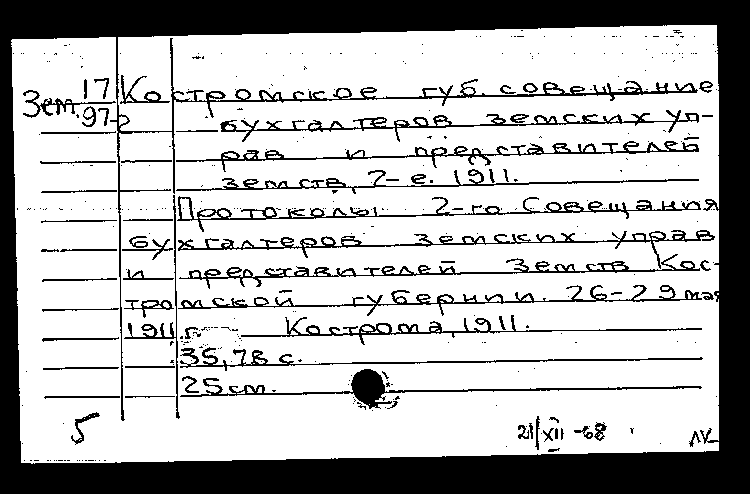 Зем. 17
97-2
Костромское губ. совещание
бухгалтеров земских уп-
рав и представителей
земств, 2-е. 1911.
Протоколы 2-го Совещания
бухгалтеров земских управ
и представителей земств Кос-
тромской губернии. 26-29 мая
1911 г. Кострома, 1911.
35, 78 с.
25 см.
5
21/XII-68